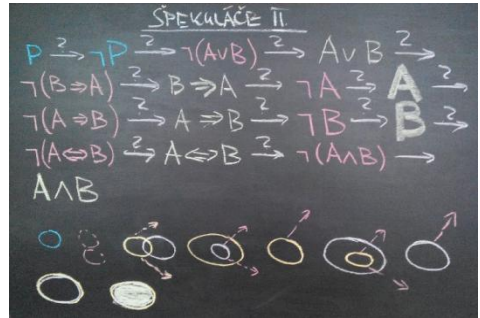 ŠPEKULÁČE II
P ?→ ¬P ?→ ¬(A∨B) ?→ A∨B ?→
¬(B⇒A) ?→ B⇒A ?→ ¬A ?→ A ?→
¬(A⇒B) ?→ A⇒B ?→ ¬B ?→ B ?→
¬(A⇔B) ?→ A⇔B ?→ ¬(A∧B) →
A∧B